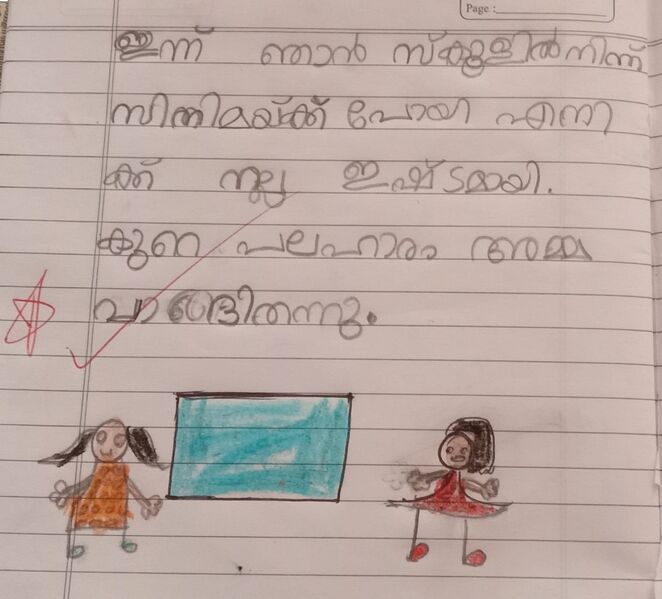 Page :
ഇന്ന് ഞാൻ സ്കൂളിൽനിന്ന്
സിനിമയ്ക്ക് പോയി എനി
ക്ക് നല്ല ഇഷ്ടമായി.
കുറെ പലഹാരം അമ്മ
വാങ്ങിതന്നു.